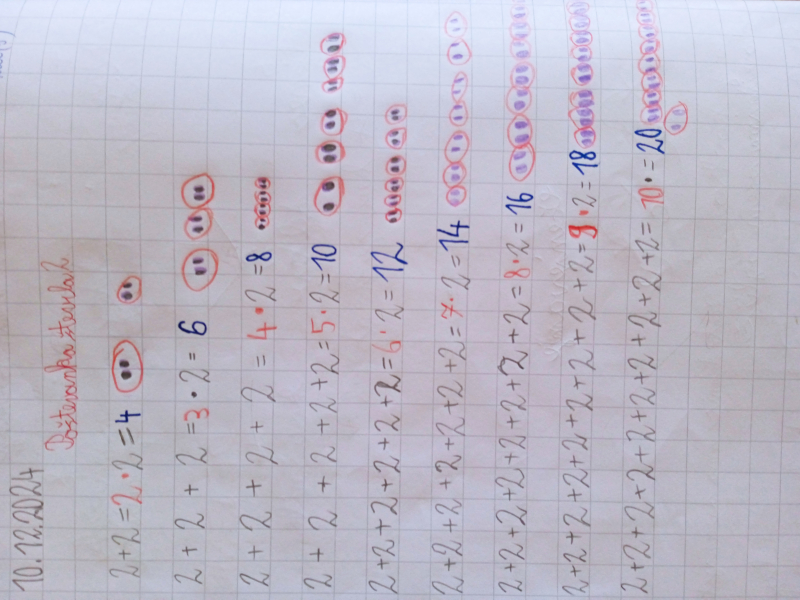 10.12.2024
Poštevanka števila 2
2+2=2·2=4
2+2+2=3·2=6
2+2+2+2=4·2=8
2+2+2+2+2=5·2=10
2+2+2+2+2+2=6·2=12
2+2+2+2+2+2+2=7·2=14
2+2+2+2+2+2+2+2=8·2=16
2+2+2+2+2+2+2+2+2=9·2=18
2+2+2+2+2+2+2+2+2+2=10·=20